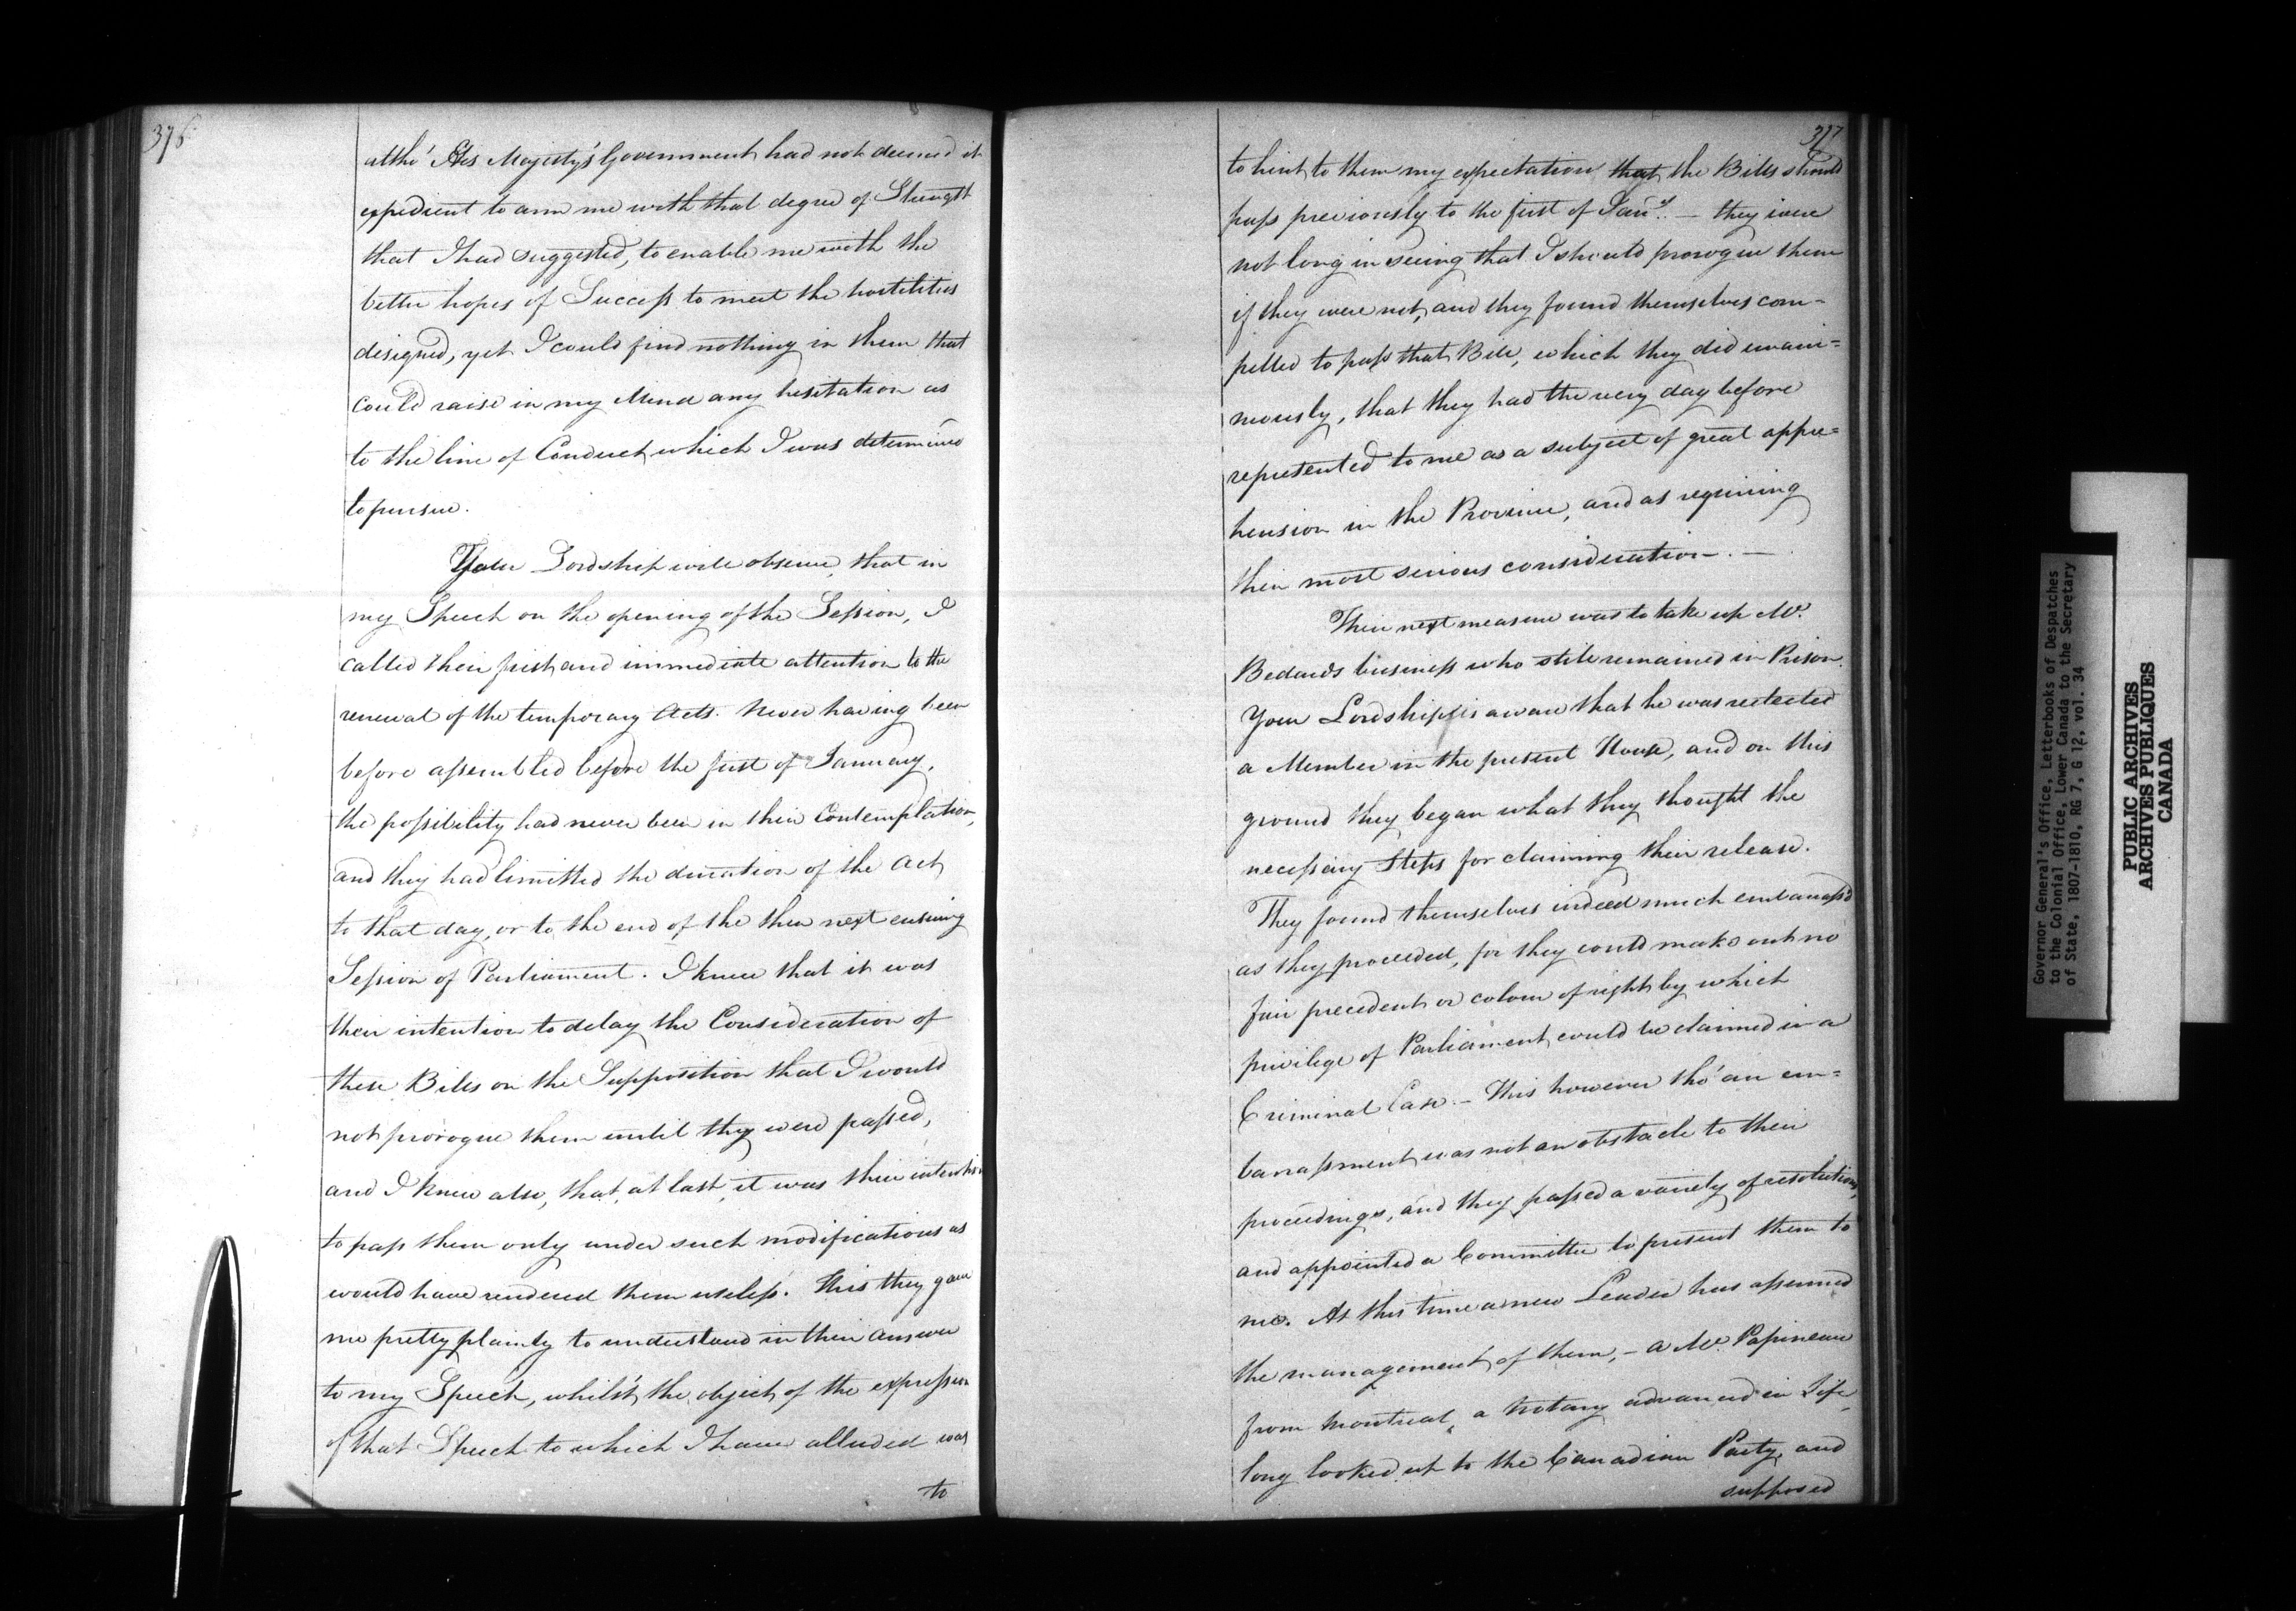 376
altho' His Majesty's Government had not deemed it
expedient to arm me with that degree of Strength
that I had suggested, to enable me with the
better hopes of Success to meet the hostilities
designed, yet I could find nothing in them that
could raise in my Mind any hesitation as
to the line of Conduct which I was determined
to pursue.
Your Lordship will observe, that in
my Speech on the opening of the Session, I
called their first and immediate attention to the
renewal of the temporary Acts. Never having been
before assembled before the first of January,
the possibility had never been in their Contemplation,
and they had limitted the duration of the Act
to that day, or to the end of the then next ensuing
Session of Parliament. I knew that it was
their intention to delay the Consideration of
these Bills on the Supposition that I would
not prorogue them until they were passed,
and I knew also, that, at last, it was their intention
to pass them only under such modifications as
would have rendered them useless. This they gave
me pretty plainly to understand in their answer
to my Speech, whilst the object of the expression
of that Speech to which I have alluded was
to
377
to hint to them my expectation that the Bills should
pass previously to the first of Jany. — they were
not long in seeing that I should prorogue them
if they were not, and they found themselves com=
pelled to pass that Bill, which they did unani=
mously, that they had the very day before
represented to me as a subject of great appre=
hension in the Province, and as requiring
their most serious consideration. —
Their next measure was to take up Mr.
Bedards business who still remained in Prison.
Your Lordship is aware that he was reelected
a Member in the present House, and on this
ground they began what they thought the
necessary Steps for claiming their release.
They found themselves indeed much embarrass'd
as they proceeded, for they could make out no
fair precedent or colour of right by which
privilege of Parliament could be claimed in a
Criminal Case. — This however tho' an em=
barrassment was not an obstacle to their
proceedings, and they passed a variety of resolutions,
and appointed a Committee to present them to
me. At this time a new Leader has assumed
the management of them, — a Mr. Papineau
from Montreal, a Notary advanced in Life,
long looked up to the Canadian Party, and
supposed
Governor General's Office, Letterbooks of Despatches
to the Colonial Office, Lower Canada to the Secretary
of State, 1807-1810, RG 7, G 12, vol. 34
PUBLIC ARCHIVES
ARCHIVES PUBLIQUES
CANADA